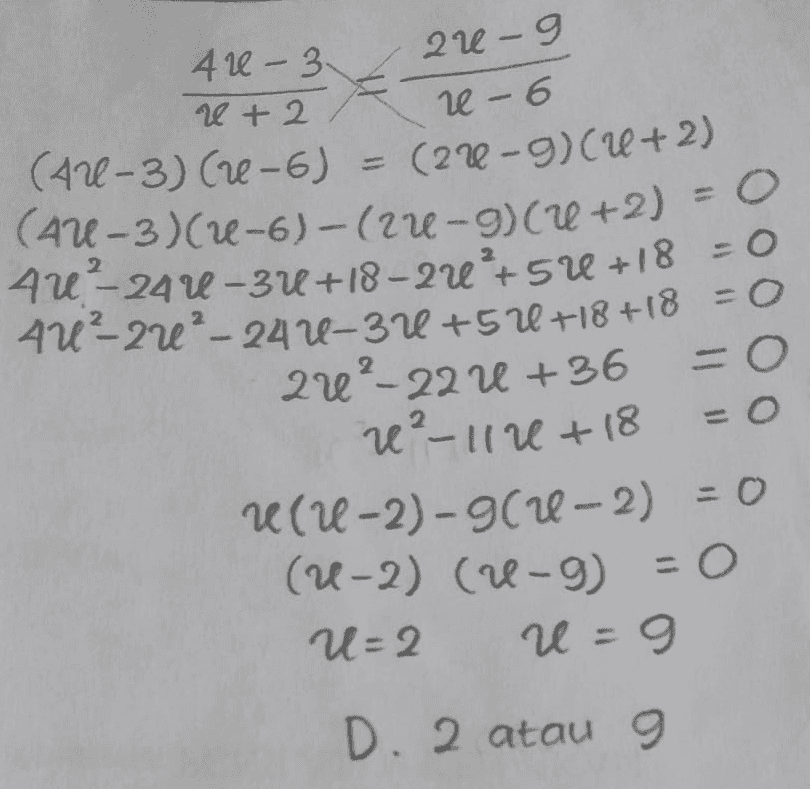 (4x-3)/(x+2) = (2x-9)/(x-6)
(4x-3)(x-6) = (2x-9)(x+2)
(4x-3)(x-6)-(2x-9)(x+2) = 0
4x²-24x-3x+18-2x²+5x+18 = 0
4x²-2x²-24x-3x+5x+18+18 = 0
2x²-22x+36 = 0
x²-11x+18 = 0
x(x-2)-9(x-2) = 0
(x-2) (x-9) = 0
x=2 x=9
D. 2 atau 9